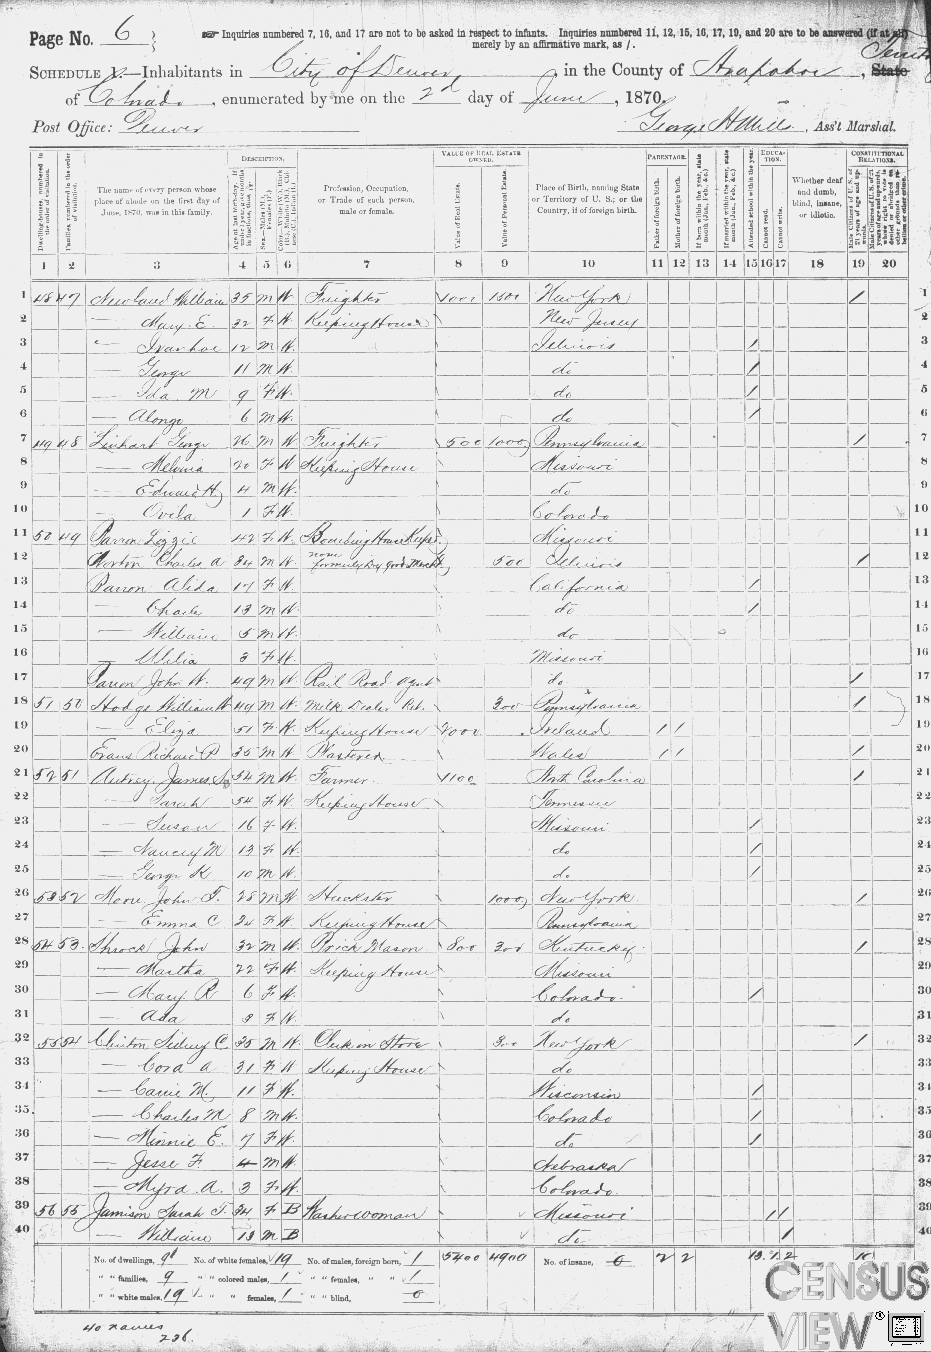 Page No. 6
☞ Inquiries numbered 7, 16, and 17 are not to be asked in respect to infants. Inquiries numbered 11, 12, 15, 16, 17, 19, and 20 are to be answered (if at all)
merely by an affirmative mark, as /.
SCHEDULE 1.—Inhabitants in City of Denver, in the County of Arapahoe, State Territory
of Colorado, enumerated by me on the 2d day of June, 1870.
Post Office: Denver George H Mills, Ass't Marshal.
DESCRIPTION. VALUE OF REAL ESTATE OWNED. PARENTAGE. EDUCATION. CONSTITUTIONAL RELATIONS.
Dwelling-houses, numbered in the order of visitation.
Families, numbered in the order of visitation.
The name of every person whose place of abode on the first day of June, 1870, was in this family.
Sex.—Males (M.), Females (F.)
Profession, Occupation, or Trade of each person, male or female.
Value of Real Estate.
Value of Personal Estate.
Place of Birth, naming State or Territory of U. S.; or the Country, if of foreign birth.
Father of foreign birth.
Mother of foreign birth.
If born within the year, state month (Jan., Feb., &c.)
If married within the year, state month (Jan., Feb., &c.)
Attended school within the year.
Cannot read.
Cannot write.
Whether deaf and dumb, blind, insane, or idiotic.
1 2 3 4 5 6 7 8 9 10 11 12 13 14 15 16 17 18 19 20
1 48 47 Newland William 35 M W Freighter 1000 1500 New York / 1
2 — Mary E. 32 F W Keeping House New Jersey 2
3 — Ivanhoe 12 M W Illinois / 3
4 — George 11 M W do / 4
5 — Ida M 9 F W do / 5
6 — Alonzo 6 M W do / 6
7 49 48 Linhart George 26 M W Freighter 500 1000 Pennsylvania / 7
8 — Melvina 20 F W Keeping House Missouri 8
9 — Edward H 4 M W do 9
10 — Ovila 1 F W Colorado 10
11 50 49 Parron Lizzie 42 F W Boarding House Keeper Missouri 11
12 Horton Charles A 34 M W none formerly Dry Good Mercht 500 Illinois / 12
13 Parron Alida 17 F W California / 13
14 — Charles 13 M W do / 14
15 — William 5 M W do 15
16 — 3 F W Missouri 16
17 Parron John W. 49 M W Rail Road Agent do / 17
18 51 50 Hodge William H 49 M W Milk Dealer Ret. 300 Pennsylvania / 18
19 — Eliza 51 F W Keeping House 2000 Ireland / / 19
20 Evans Richard P 35 M W Plasterer Wales / / / 20
21 52 51 Autrey James Sr 54 M W Farmer 1100 North Carolina / 21
22 — Sarah 54 F W Keeping House Tennessee 22
23 — Susan 16 F W Missouri / 23
24 — Nancy M 13 F W do / 24
25 — George K 10 M W do / 25
26 53 52 Moore John T. 28 M W Huckster 1000 New York / 26
27 — Emma C 24 F W Keeping House Pennsylvania 27
28 54 53 Shrock John 32 M W Brick Mason 800 300 Kentucky / 28
29 — Martha 22 F W Keeping House Missouri 29
30 — Mary R 6 F W Colorado / 30
31 — Ada 3 F W do 31
32 55 54 Clinton Sidney C. 35 M W Clerk in Store 300 New York / 32
33 — Cora A 31 F W Keeping House do 33
34 — Carrie M. 11 F W Wisconsin / 34
35 — Charles M 8 M W Colorado / 35
36 — Minnie E. 7 F W do / 36
37 — Jesse F. 4 M W Nebraska 37
38 — Myra A. 3 F W Colorado 38
39 56 55 Jamison Sarah T. 34 F B Washerwoman Missouri / / 39
40 — William 13 M B do / 40
No. of dwellings, 9 No. of white females, 19 No. of males, foreign born, 1 5400 4900 No. of insane, 0 2 2 13 1 2 10
" " families, 9 " " colored males, 1 " " females, " " 1
" " white males, 19 " " " females, 1 " " blind, 0
40 names
236
CENSUS
VIEW®